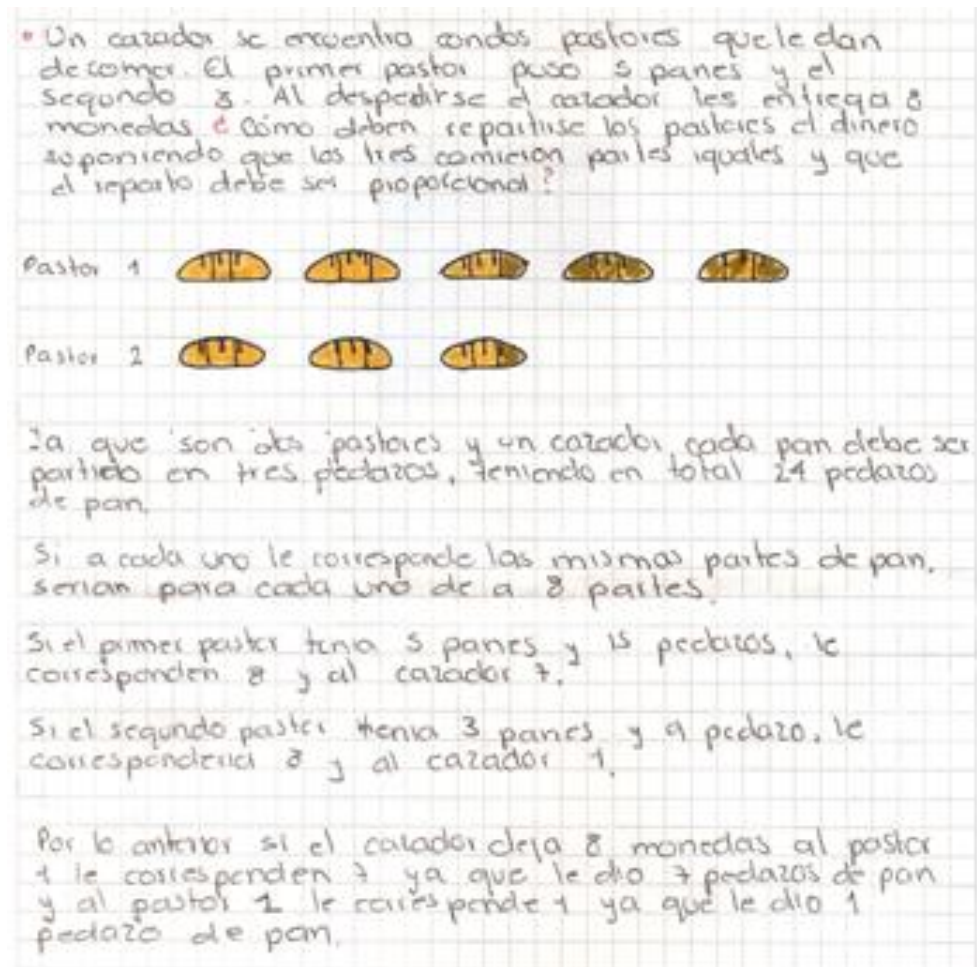 • Un cazador se encuentra con dos pastores que le dan
de comer. El primer pastor puso 5 panes y el
segundo 3. Al despedirse el cazador les entrega 8
monedas ¿Cómo deben repartirse los pastores el dinero
suponiendo que los tres comieron partes iguales y que
el reparto debe ser proporcional?
Pastor 1
Pastor 2
Ya que son dos pastores y un cazador cada pan debe ser
partido en tres pedazos, teniendo en total 24 pedazos
de pan.
Si a cada uno le corresponde las mismas partes de pan,
serian para cada uno de a 8 partes.
Si el primer pastor tenia 5 panes y 15 pedazos, le
corresponden 8 y al cazador 7.
Si el segundo pastor tenia 3 panes y 9 pedazo, le
corresponderia 8 y al cazador 1.
Por lo anterior si el cazador deja 8 monedas al pastor
1 le corresponden 7 ya que le dio 7 pedazos de pan
y al pastor 2 le corresponde 1 ya que le dio 1
pedazo de pan.